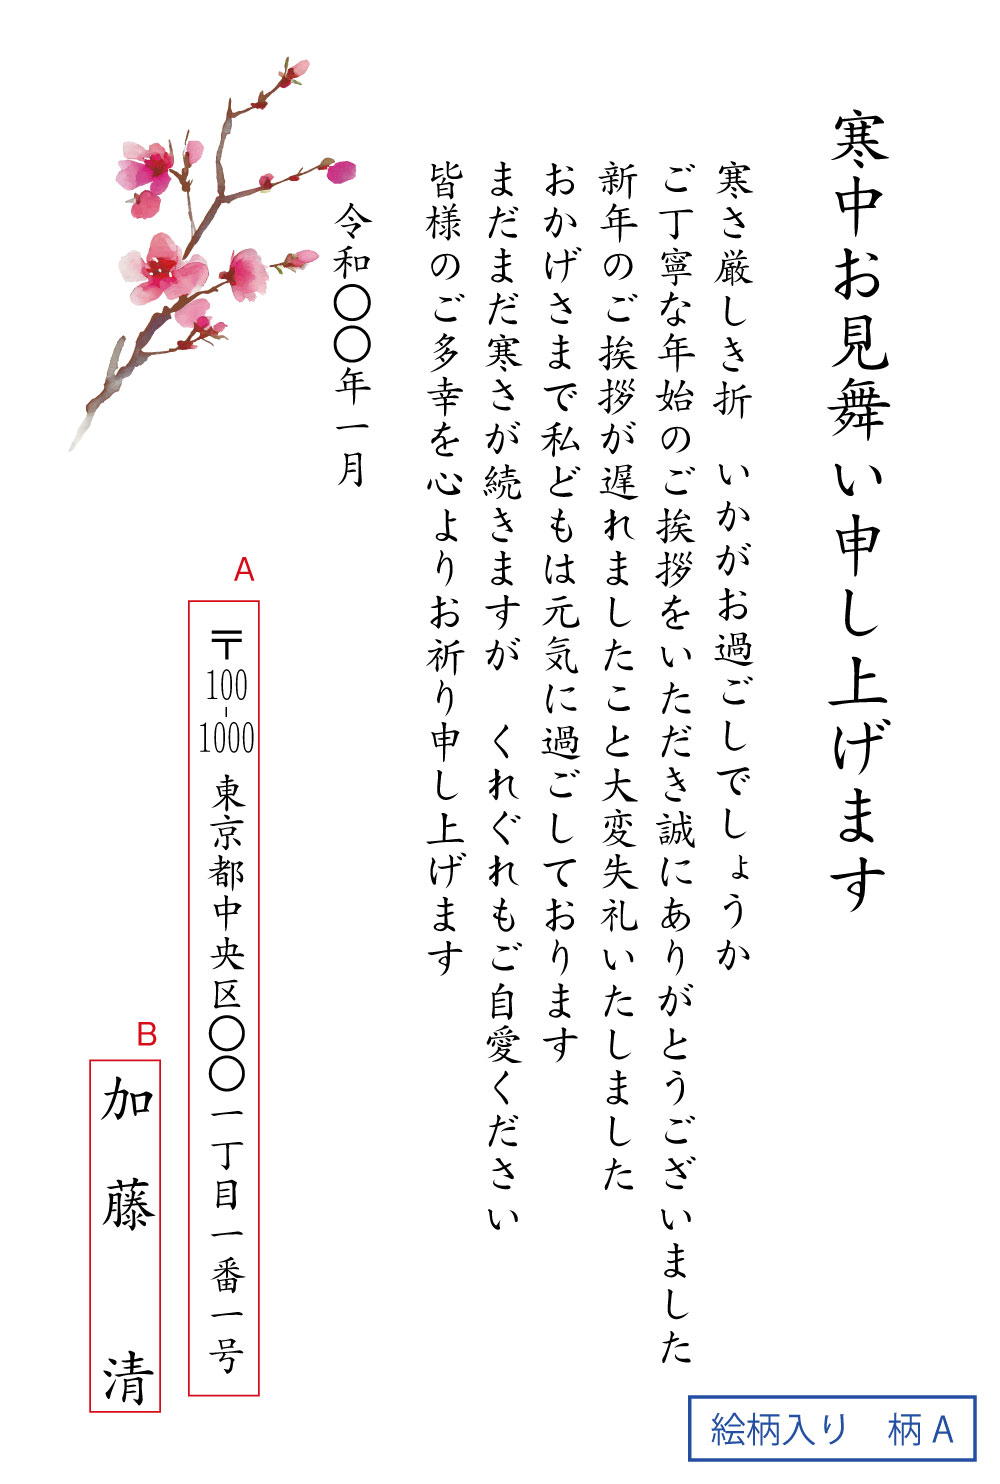 寒中お見舞い申し上げます
寒さ厳しき折　いかがお過ごしでしょうか
ご丁寧な年始のご挨拶をいただき誠にありがとうございました
新年のご挨拶が遅れましたこと大変失礼いたしました
おかげさまで私どもは元気に過ごしております
まだまだ寒さが続きますが　くれぐれもご自愛ください
皆様のご多幸を心よりお祈り申し上げます
令和〇〇年一月
A
〒100-1000 東京都中央区〇〇一丁目一番一号
B
加藤　清
絵柄入り　柄A